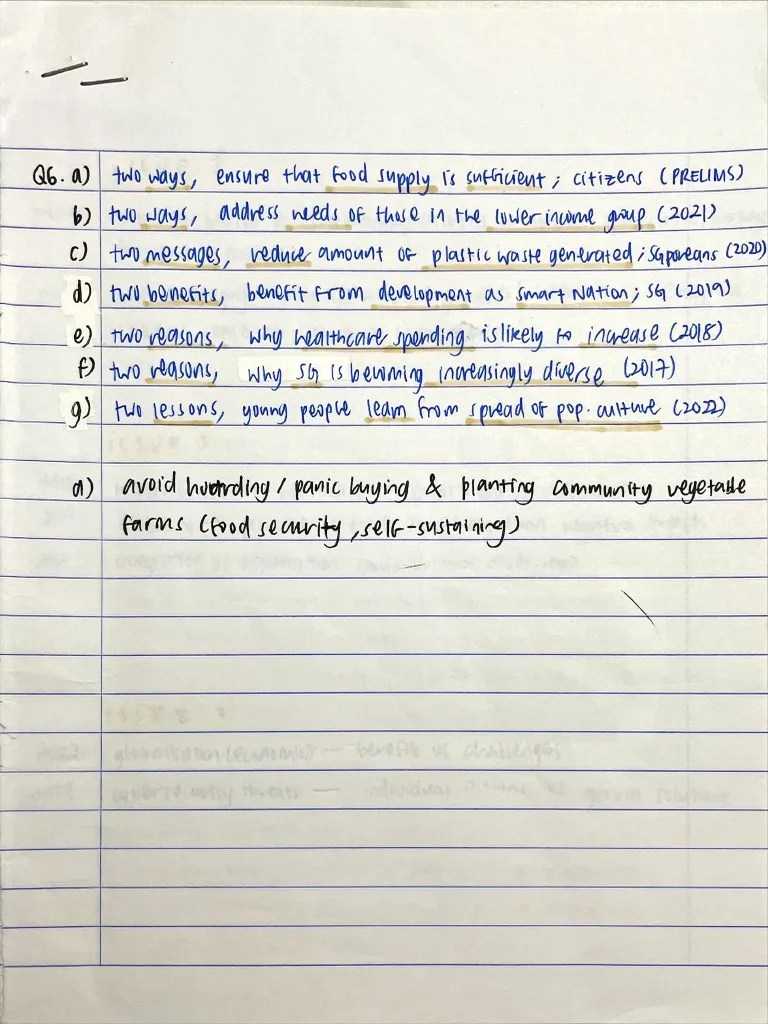 Q6. a) two ways, ensure that food supply is sufficient ; citizens (PRELIMS)
b) two ways, address needs of those in the lower income group (2021)
c) two messages, reduce amount of plastic waste generated ; SGporeans (2020)
d) two benefits, benefit from development as smart Nation ; SG (2019)
e) two reasons, why healthcare spending is likely to increase (2018)
f) two reasons, why SG is becoming increasingly diverse (2017)
g) two lessons, young people learn from spread of pop. culture (2022)
a) avoid hoarding / panic buying & planting community vegetable
farms (food security , self-sustaining)